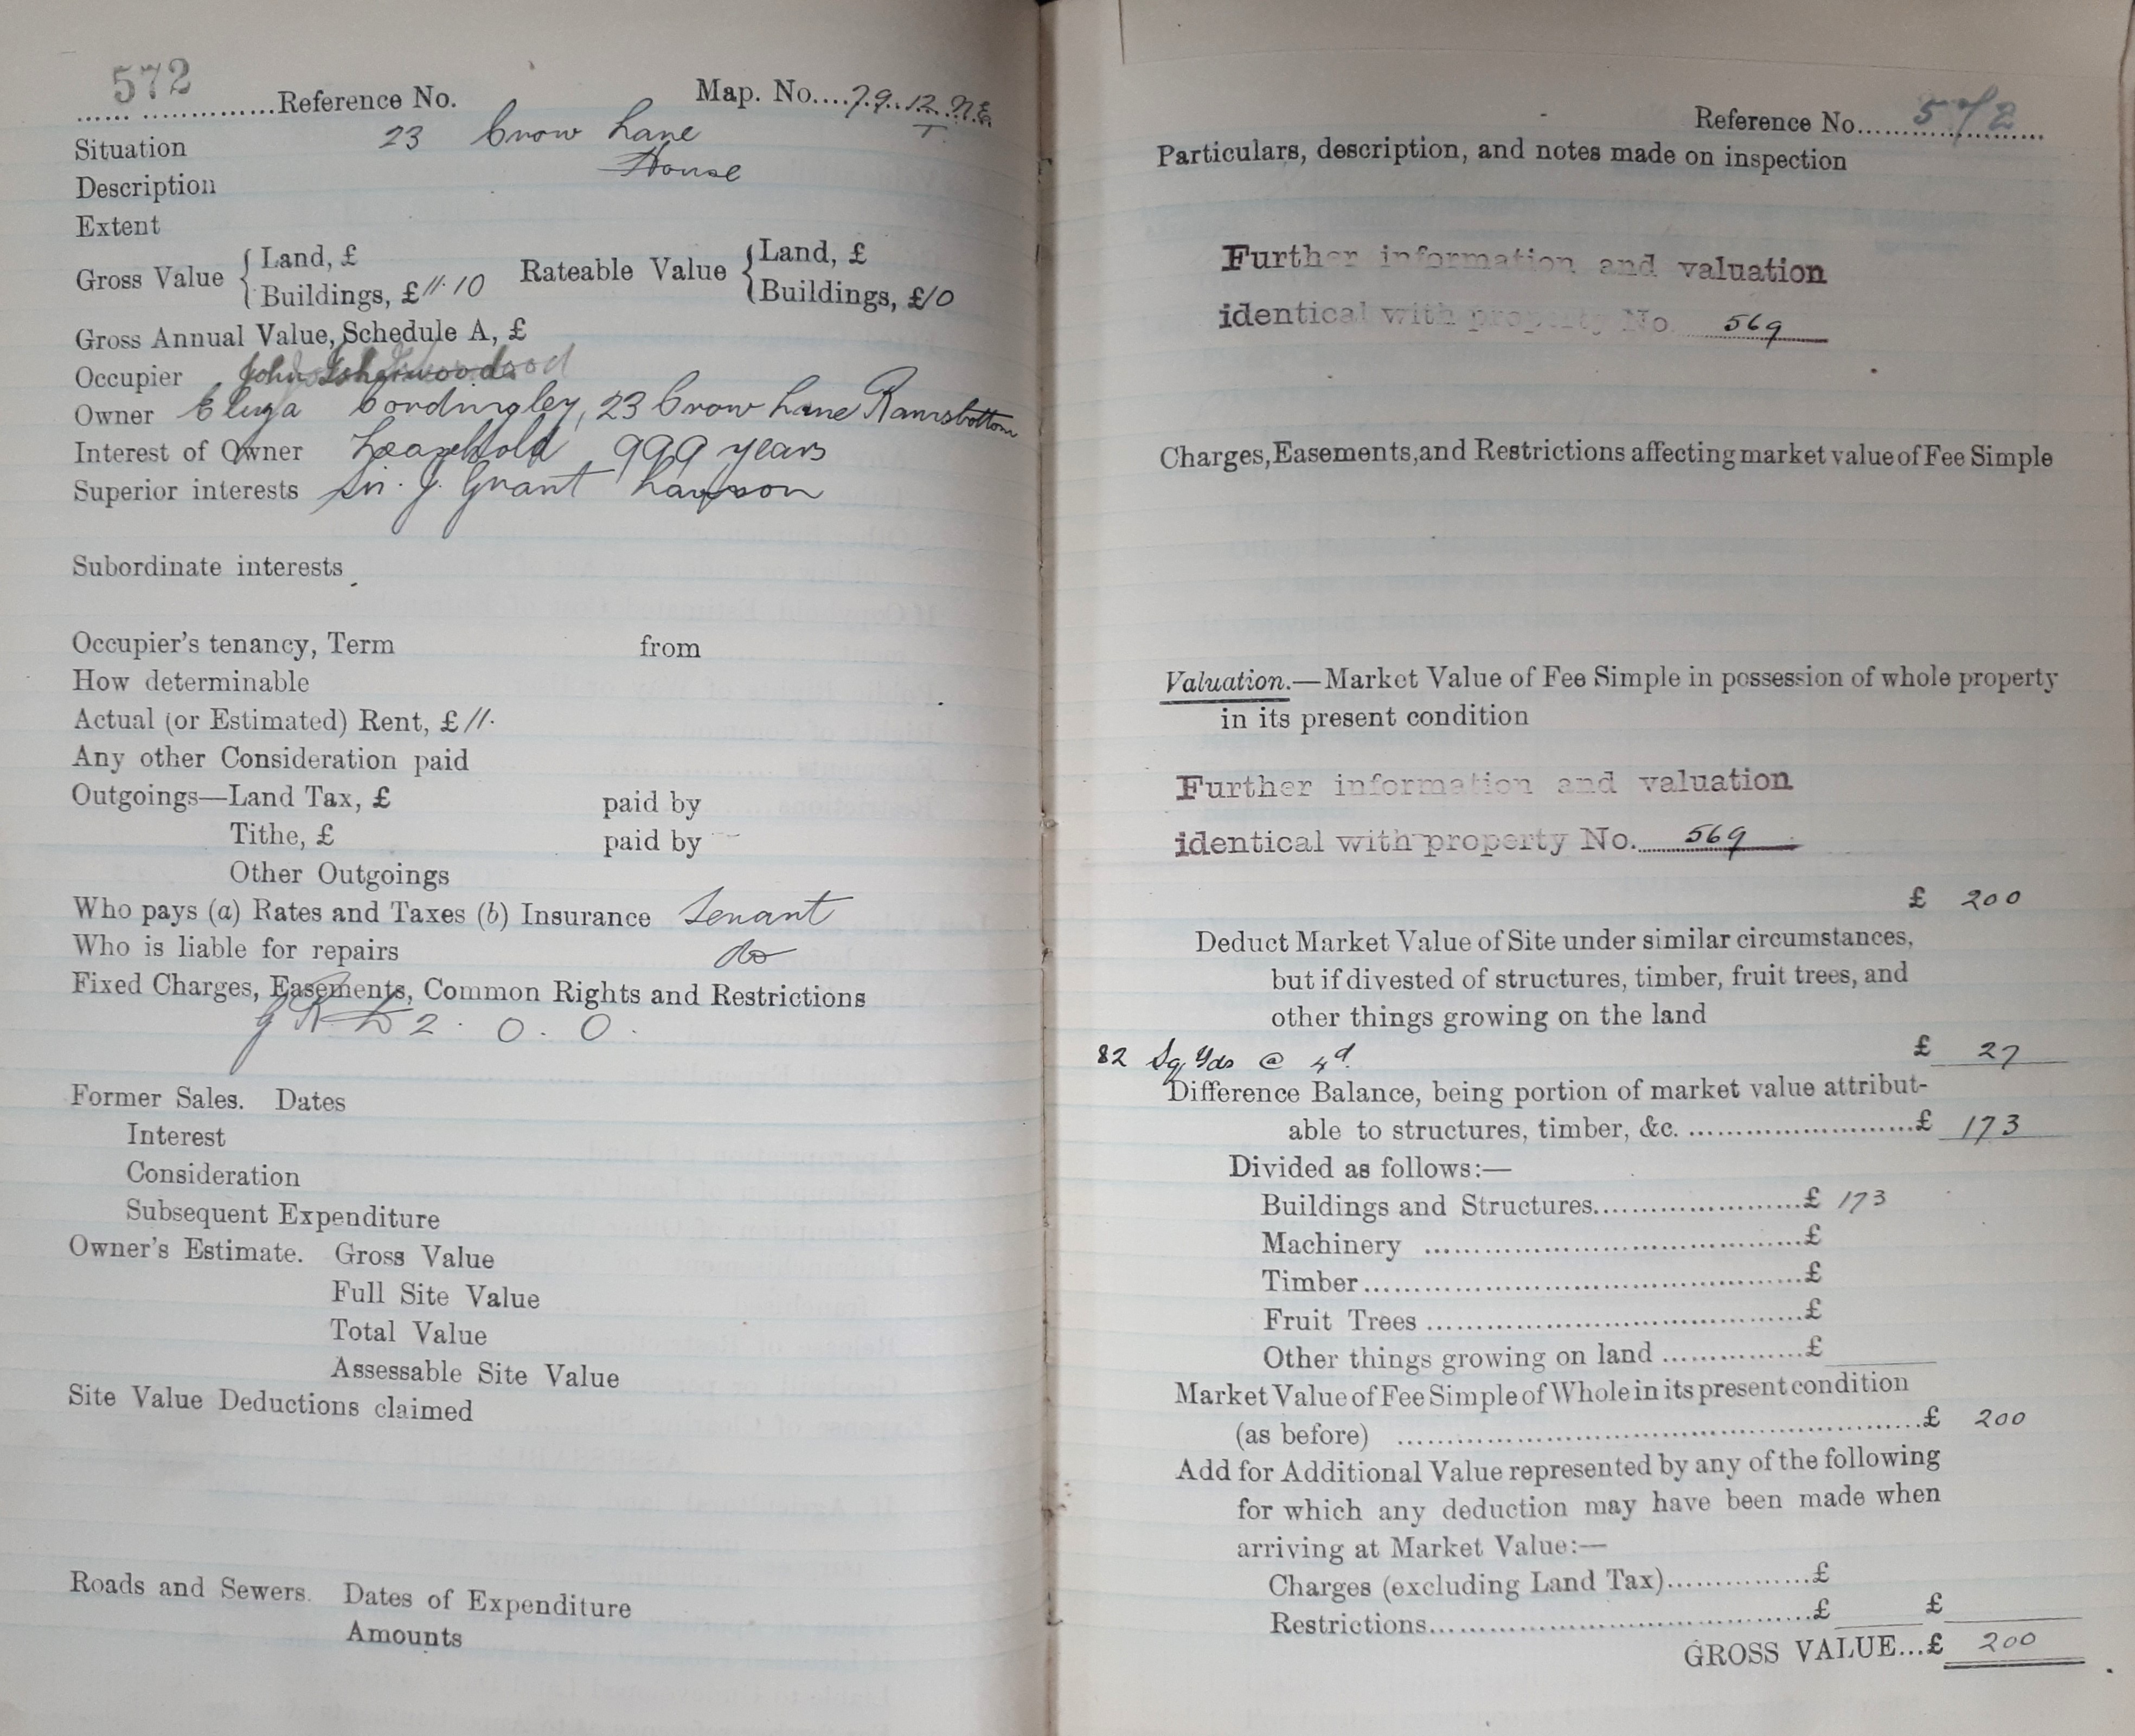 572
Reference No.
Map. No....79.12.N.E.
Situation 23 Crow Lane
Description House
Extent
Gross Value { Land, £
Buildings, £11.10
Rateable Value { Land, £
Buildings, £10
Gross Annual Value, Schedule A, £
Occupier John Isherwood
Owner Eliza Cordingley, 23 Crow Lane Ramsbottom
Interest of Owner Leasehold 999 years
Superior interests Sir. J. Grant Lawson
Subordinate interests
Occupier's tenancy, Term from
How determinable
Actual (or Estimated) Rent, £ 11.
Any other Consideration paid
Outgoings—Land Tax, £ paid by
Tithe, £ paid by
Other Outgoings
Who pays (a) Rates and Taxes (b) Insurance Tenant
Who is liable for repairs do
Fixed Charges, Easements, Common Rights and Restrictions
G R £ 2. 0. 0.
Former Sales. Dates
Interest
Consideration
Subsequent Expenditure
Owner's Estimate. Gross Value
Full Site Value
Total Value
Assessable Site Value
Site Value Deductions claimed
Roads and Sewers. Dates of Expenditure
Amounts
Reference No. 572
Particulars, description, and notes made on inspection
Further information and valuation
identical with property No. 569
Charges, Easements, and Restrictions affecting market value of Fee Simple
Valuation.—Market Value of Fee Simple in possession of whole property
in its present condition
Further information and valuation
identical with property No. 569
£ 200
Deduct Market Value of Site under similar circumstances,
but if divested of structures, timber, fruit trees, and
other things growing on the land
82 Sq Yds @ 4d. £ 27
Difference Balance, being portion of market value attribut-
able to structures, timber, &c. £ 173
Divided as follows:—
Buildings and Structures £ 173
Machinery £
Timber £
Fruit Trees £
Other things growing on land £
Market Value of Fee Simple of Whole in its present condition
(as before) £ 200
Add for Additional Value represented by any of the following
for which any deduction may have been made when
arriving at Market Value:—
Charges (excluding Land Tax) £
Restrictions £ £
GROSS VALUE...£ 200